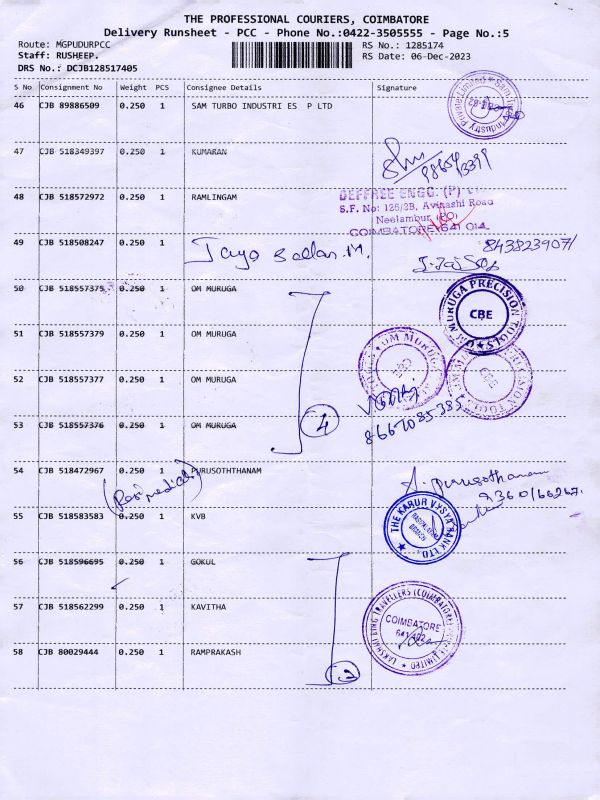 THE PROFESSIONAL COURIERS, COIMBATORE
Delivery Runsheet - PCC - Phone No.:0422-3505555 - Page No.:5
Route: MGPUDURPCC
RS No.: 1285174
Staff: RUSHEEP.
RS Date: 06-Dec-2023
DRS No.: DCJB128517405
S No Consignment No Weight PCS Consignee Details Signature
46 CJB 89886509 0.250 1 SAM TURBO INDUSTRI ES P LTD
47 CJB 518349397 0.250 1 KUMARAN
48 CJB 518572972 0.250 1 RAMLINGAM
DEFFREE ENGG. (P)
S.F. No: 125/2B, Avinashi Road
Neelambur (PO)
COIMBATORE-641 014.
49 CJB 518508247 0.250 1 8438239071
50 CJB 518557375 0.250 1 OM MURUGA
OM MURUGA PRECISION TOOLS
CBE
51 CJB 518557379 0.250 1 OM MURUGA
52 CJB 518557377 0.250 1 OM MURUGA
8667085385
53 CJB 518557376 0.250 1 OM MURUGA
4
54 CJB 518472967 0.250 1 PURUSOTHTHANAM
A. Purusothanam
55 CJB 518583583 0.250 1 KVB
THE KARUR VYSYA BANK LTD.
56 CJB 518596695 0.250 1 GOKUL
57 CJB 518562299 0.250 1 KAVITHA
COIMBATORE
58 CJB 80029444 0.250 1 RAMPRAKASH